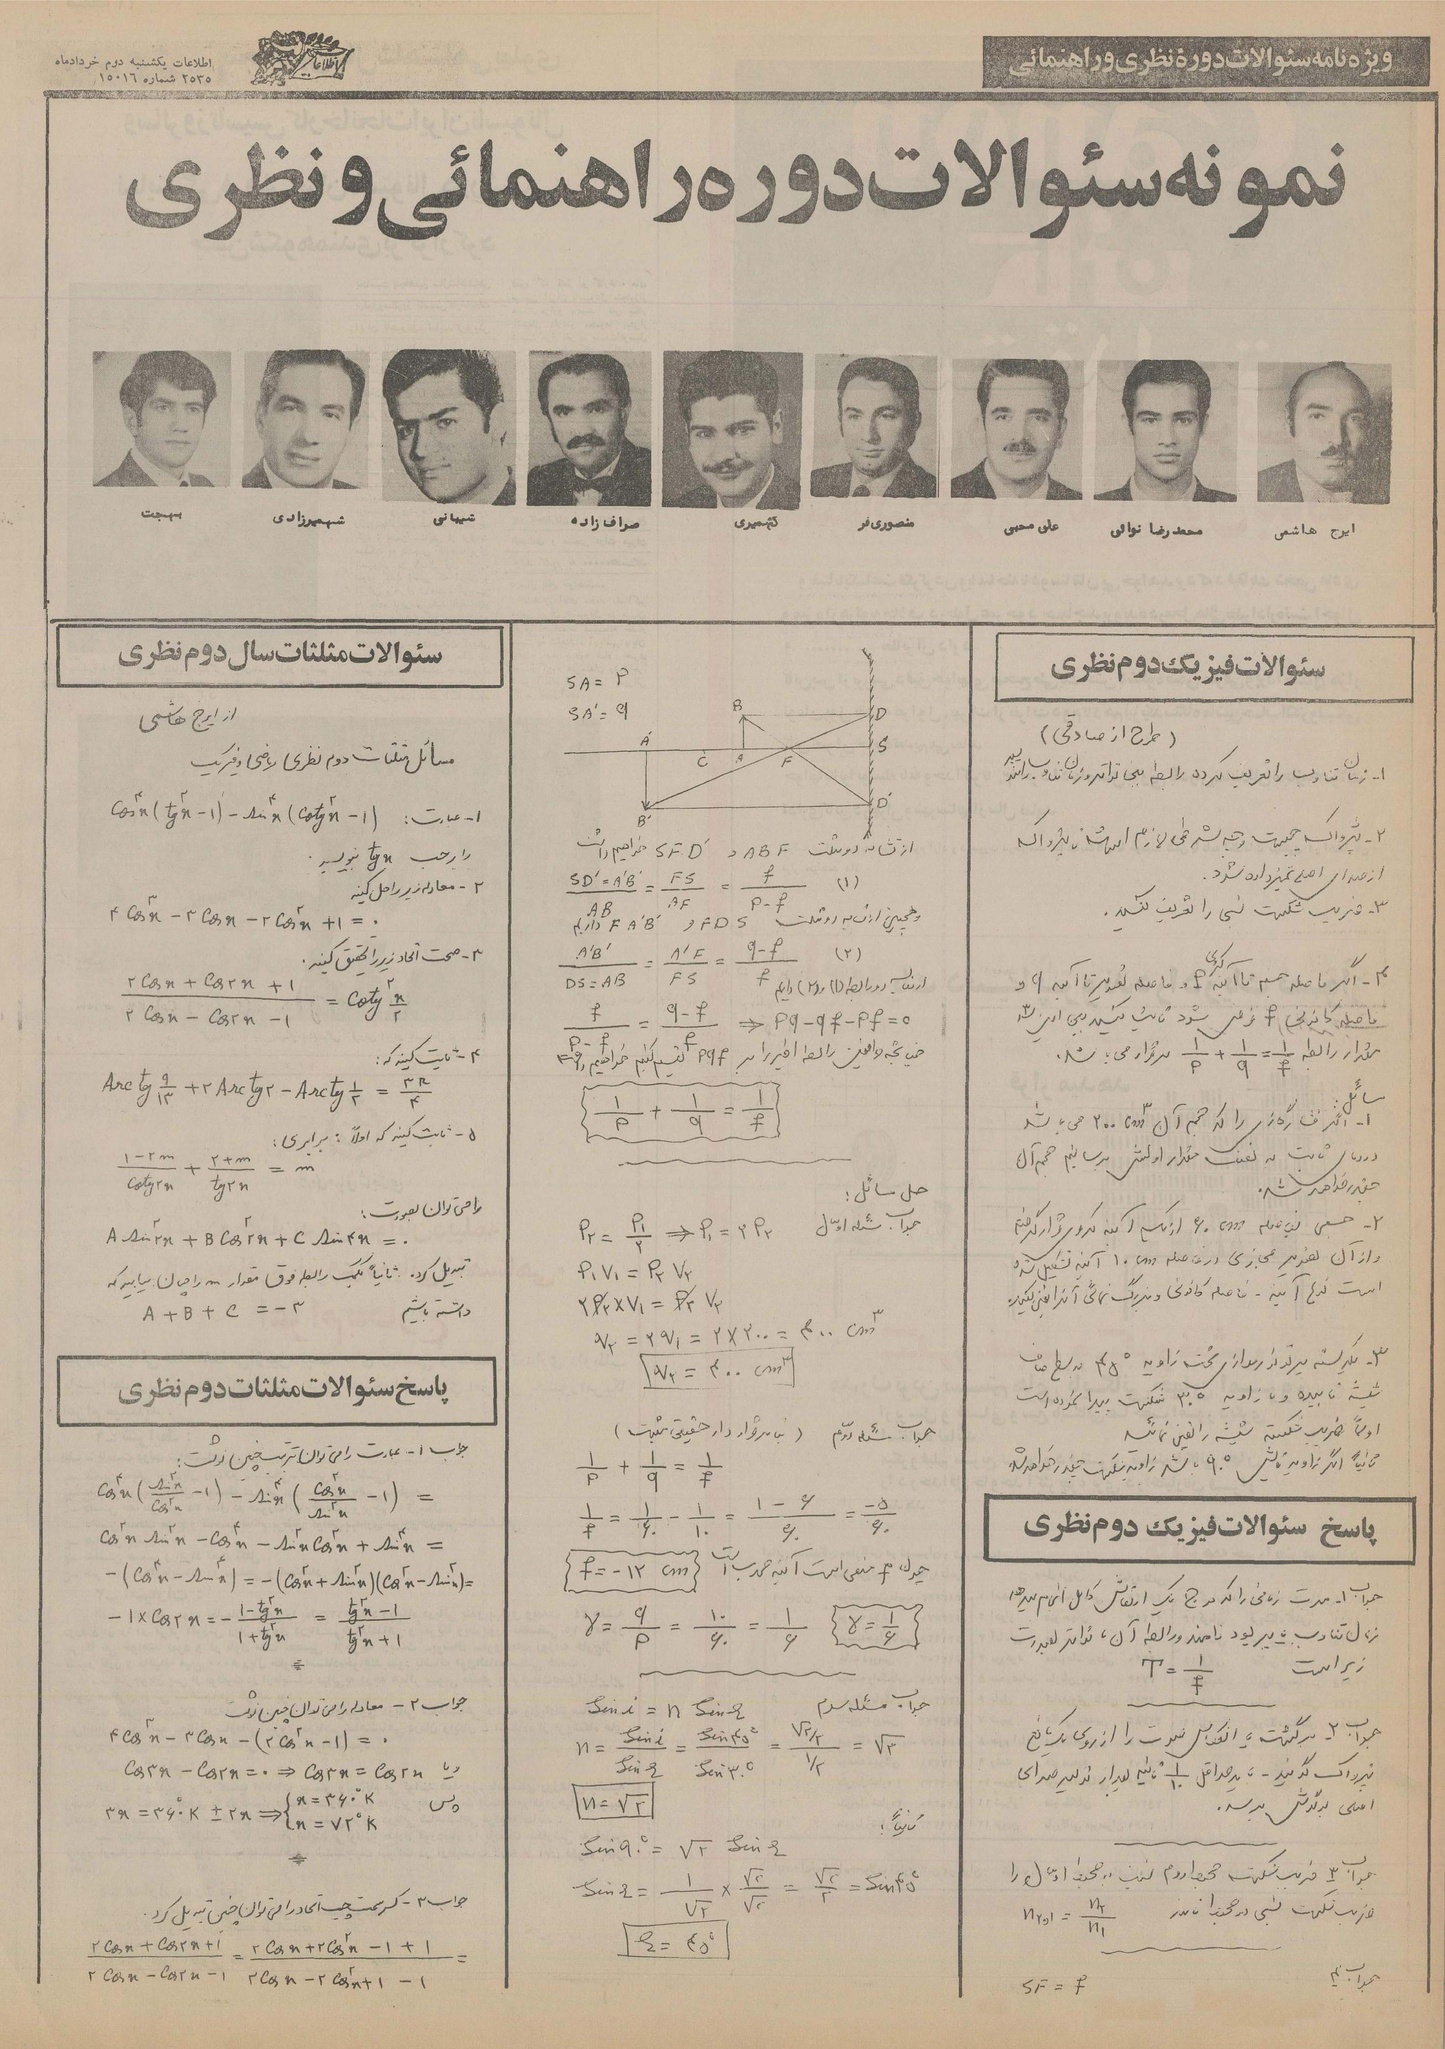 ویژه نامه سئوالات دورهٔ نظری و راهنمائی
اطلاعات یکشنبه دوم خردادماه
۲۵۳۵ شماره ۱۵۰۱۶
نمونه سئوالات دوره راهنمائی و نظری
ایرج هاشمی
محمدرضا نوائی
علی محبی
منصوری فر
کشمیری
صراف زاده
شیبانی
شهمیرزادی
بهجت
سئوالات فیزیک دوم نظری
(طرح از صادقی)
۱- زمان تناوب را تعریف کرده رابطه بین تواتر و زمان تناوب را بنویسید
۲- پژواک چیست و چه شرطی لازم است تا پژواک
از صدای اصلی تمیز داده شود.
۳- ضریب شکست نسبی را تعریف کنید.
۴- اگر فاصله جسم تا آینه کروی P و فاصله تصویر تا آینه q و
فاصله کانونی f فرض شود ثابت کنید بین این سه
مقدار رابطه 1/P + 1/q = 1/f برقرار می باشد.
مسائل:
۱- اگر فشار گازی را که حجم آن ۲۰۰ cm³ می باشد
در دمای ثابت به نصف مقدار اولیش برسانیم حجم آن
چقدر خواهد شد.
۲- جسمی بفاصله ۶۰ cm از یک آینه کروی قرار گرفته
و از آن تصویر مجازی در فاصله ۱۰ cm آینه تشکیل شده
است نوع آینه - فاصله کانونی و بزرگ نمائی آنرا تعیین کنید.
۳- یکدسته پرتو نور موازی تحت زاویه ۴۵° به سطح صاف
شیشه تابیده و با زاویه ۳۰° شکست پیدا نموده است
اولاً ضریب شکست شیشه را تعیین نمائید
ثانیاً اگر زاویه تابش ۹۰° باشد زاویه شکست چقدر خواهد شد
پاسخ سئوالات فیزیک دوم نظری
جواب ۱- مدت زمانی را که موج یک ارتعاش کامل انجام میدهد
زمان تناوب یا پریود نامند و رابطه آن با تواتر بصورت
زیر است T = 1/f
جواب ۲- برگشت یا انعکاس صوت را از روی یک مانع
پژواک گویند - باید حداقل 1/10 ثانیه بعد از تولید صدای
اصلی بگوش برسد.
جواب ۳- ضریب شکست محیط دوم نسبت به محیط اول را
ضریب شکست نسبی دو محیط نامند n₂و₁ = n₂/n₁
جواب ۴
SF = f
SA = P
SA' = q
B D
A' C A F S
B' D'
از تشابه دو مثلث ABF و SFD' خواهیم داشت
SD'=A'B'/AB = FS/AF = f/P-f (۱)
و همچنین از تشابه دو مثلث FDS و FA'B' داریم
A'B'/DS=AB = A'F/FS = q-f/f (۲)
از تساوی دو رابطه (۱) و (۲) داریم
f/P-f = q-f/f ⇒ Pq-qf-Pf=0
چنانچه طرفین رابطه اخیر را بر Pqf تقسیم کنیم خواهیم داشت
1/P + 1/q = 1/f
حل مسائل:
جواب مسئله اول P₂ = P₁/۲ ⇒ P₁ = ۲P₂
P₁V₁ = P₂V₂
۲P₂×V₁ = P₂V₂
V₂ = ۲V₁ = ۲×۲۰۰ = ۴۰۰ cm³
V₂ = ۴۰۰ cm³
جواب مسئله دوم (بنا بر قرارداد حقیقی مثبت)
1/P + 1/q = 1/f
1/f = 1/۶۰ - 1/۱۰ = ۱-۶/۶۰ = -۵/۶۰
چون f منفی است آینه محدب است f = -۱۲ cm
γ = q/P = ۱۰/۶۰ = ۱/۶ γ = ۱/۶
جواب مسئله سوم Sin i = n Sin r
n = Sin i/Sin r = Sin ۴۵°/Sin ۳۰° = √۲/۲ / ۱/۲ = √۲
n = √۲
ثانیاً:
Sin ۹۰° = √۲ Sin r
Sin r = ۱/√۲ × √۲/√۲ = √۲/۲ = Sin ۴۵°
r = ۴۵°
سئوالات مثلثات سال دوم نظری
از ایرج هاشمی
مسائل مثلثات دوم نظری ریاضی و فیزیک
۱- عبارت: Cos⁴x(tg²x-1) - Sin⁴x(Cotg²x-1)
را برحسب tgx بنویسید.
۲- معادله زیر را حل کنید
۴Cos³x - ۳Cosx - ۲Cos²x + ۱ = ۰
۳- صحت اتحاد زیر را تحقیق کنید.
۲Cosx + Cos۲x + ۱/۲Cosx - Cos۲x - ۱ = Cotg² x/۲
۴- ثابت کنید که:
Arctg ۹/۱۳ + ۲Arctg۲ - Arctg ۱/۲ = ۳π/۴
۵- ثابت کنید که اولاً: برابری:
۱-۲m/Cotg۲x + ۲+m/tg۲x = m
را می توان بصورت:
A Sin²۲x + B Cos²۲x + C Sin۴x = ۰
تبدیل کرد. ثانیاً بکمک رابطه فوق مقدار m را چنان بیابید که
داشته باشیم A + B + C = -۳
پاسخ سئوالات مثلثات دوم نظری
جواب ۱- عبارت را می توان بترتیب چنین نوشت:
Cos⁴x(Sin²x/Cos²x -1) - Sin⁴x(Cos²x/Sin²x -1) =
Cos²x Sin²x - Cos⁴x - Sin²x Cos²x + Sin⁴x =
-(Cos⁴x - Sin⁴x) = -(Cos²x + Sin²x)(Cos²x - Sin²x) =
-1×Cos۲x = - 1-tg²x/1+tg²x = tg²x-1/tg²x+1
جواب ۲- معادله را می توان چنین نوشت
۴Cos³x - ۳Cosx - (۲Cos²x - ۱) = ۰
و یا Cos۳x - Cos۲x = ۰ ⇒ Cos۳x = Cos۲x
پس ۳x = ۳۶۰°K ± ۲x ⇒ { x = ۳۶۰°K
x = ۷۲°K
جواب ۳- کسر سمت چپ اتحاد را می توان چنین تبدیل کرد.
۲Cosx + Cos۲x + ۱/۲Cosx - Cos۲x - ۱ = ۲Cosx + ۲Cos²x - ۱ + ۱/۲Cosx - ۲Cos²x + ۱ - ۱ =